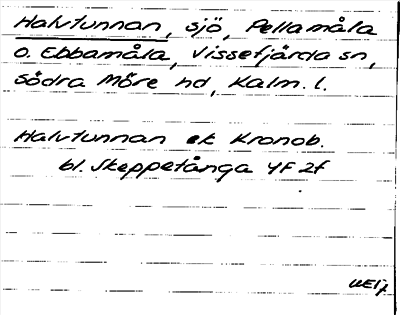 Halvtunnan, sjö, Pellamåla
o. Ebbamåla, Vissefjärda sn,
södra Möre hd, Kalm. l.
Halvtunnan ek Kronob.
bl. Skeppetånga 4F 2f